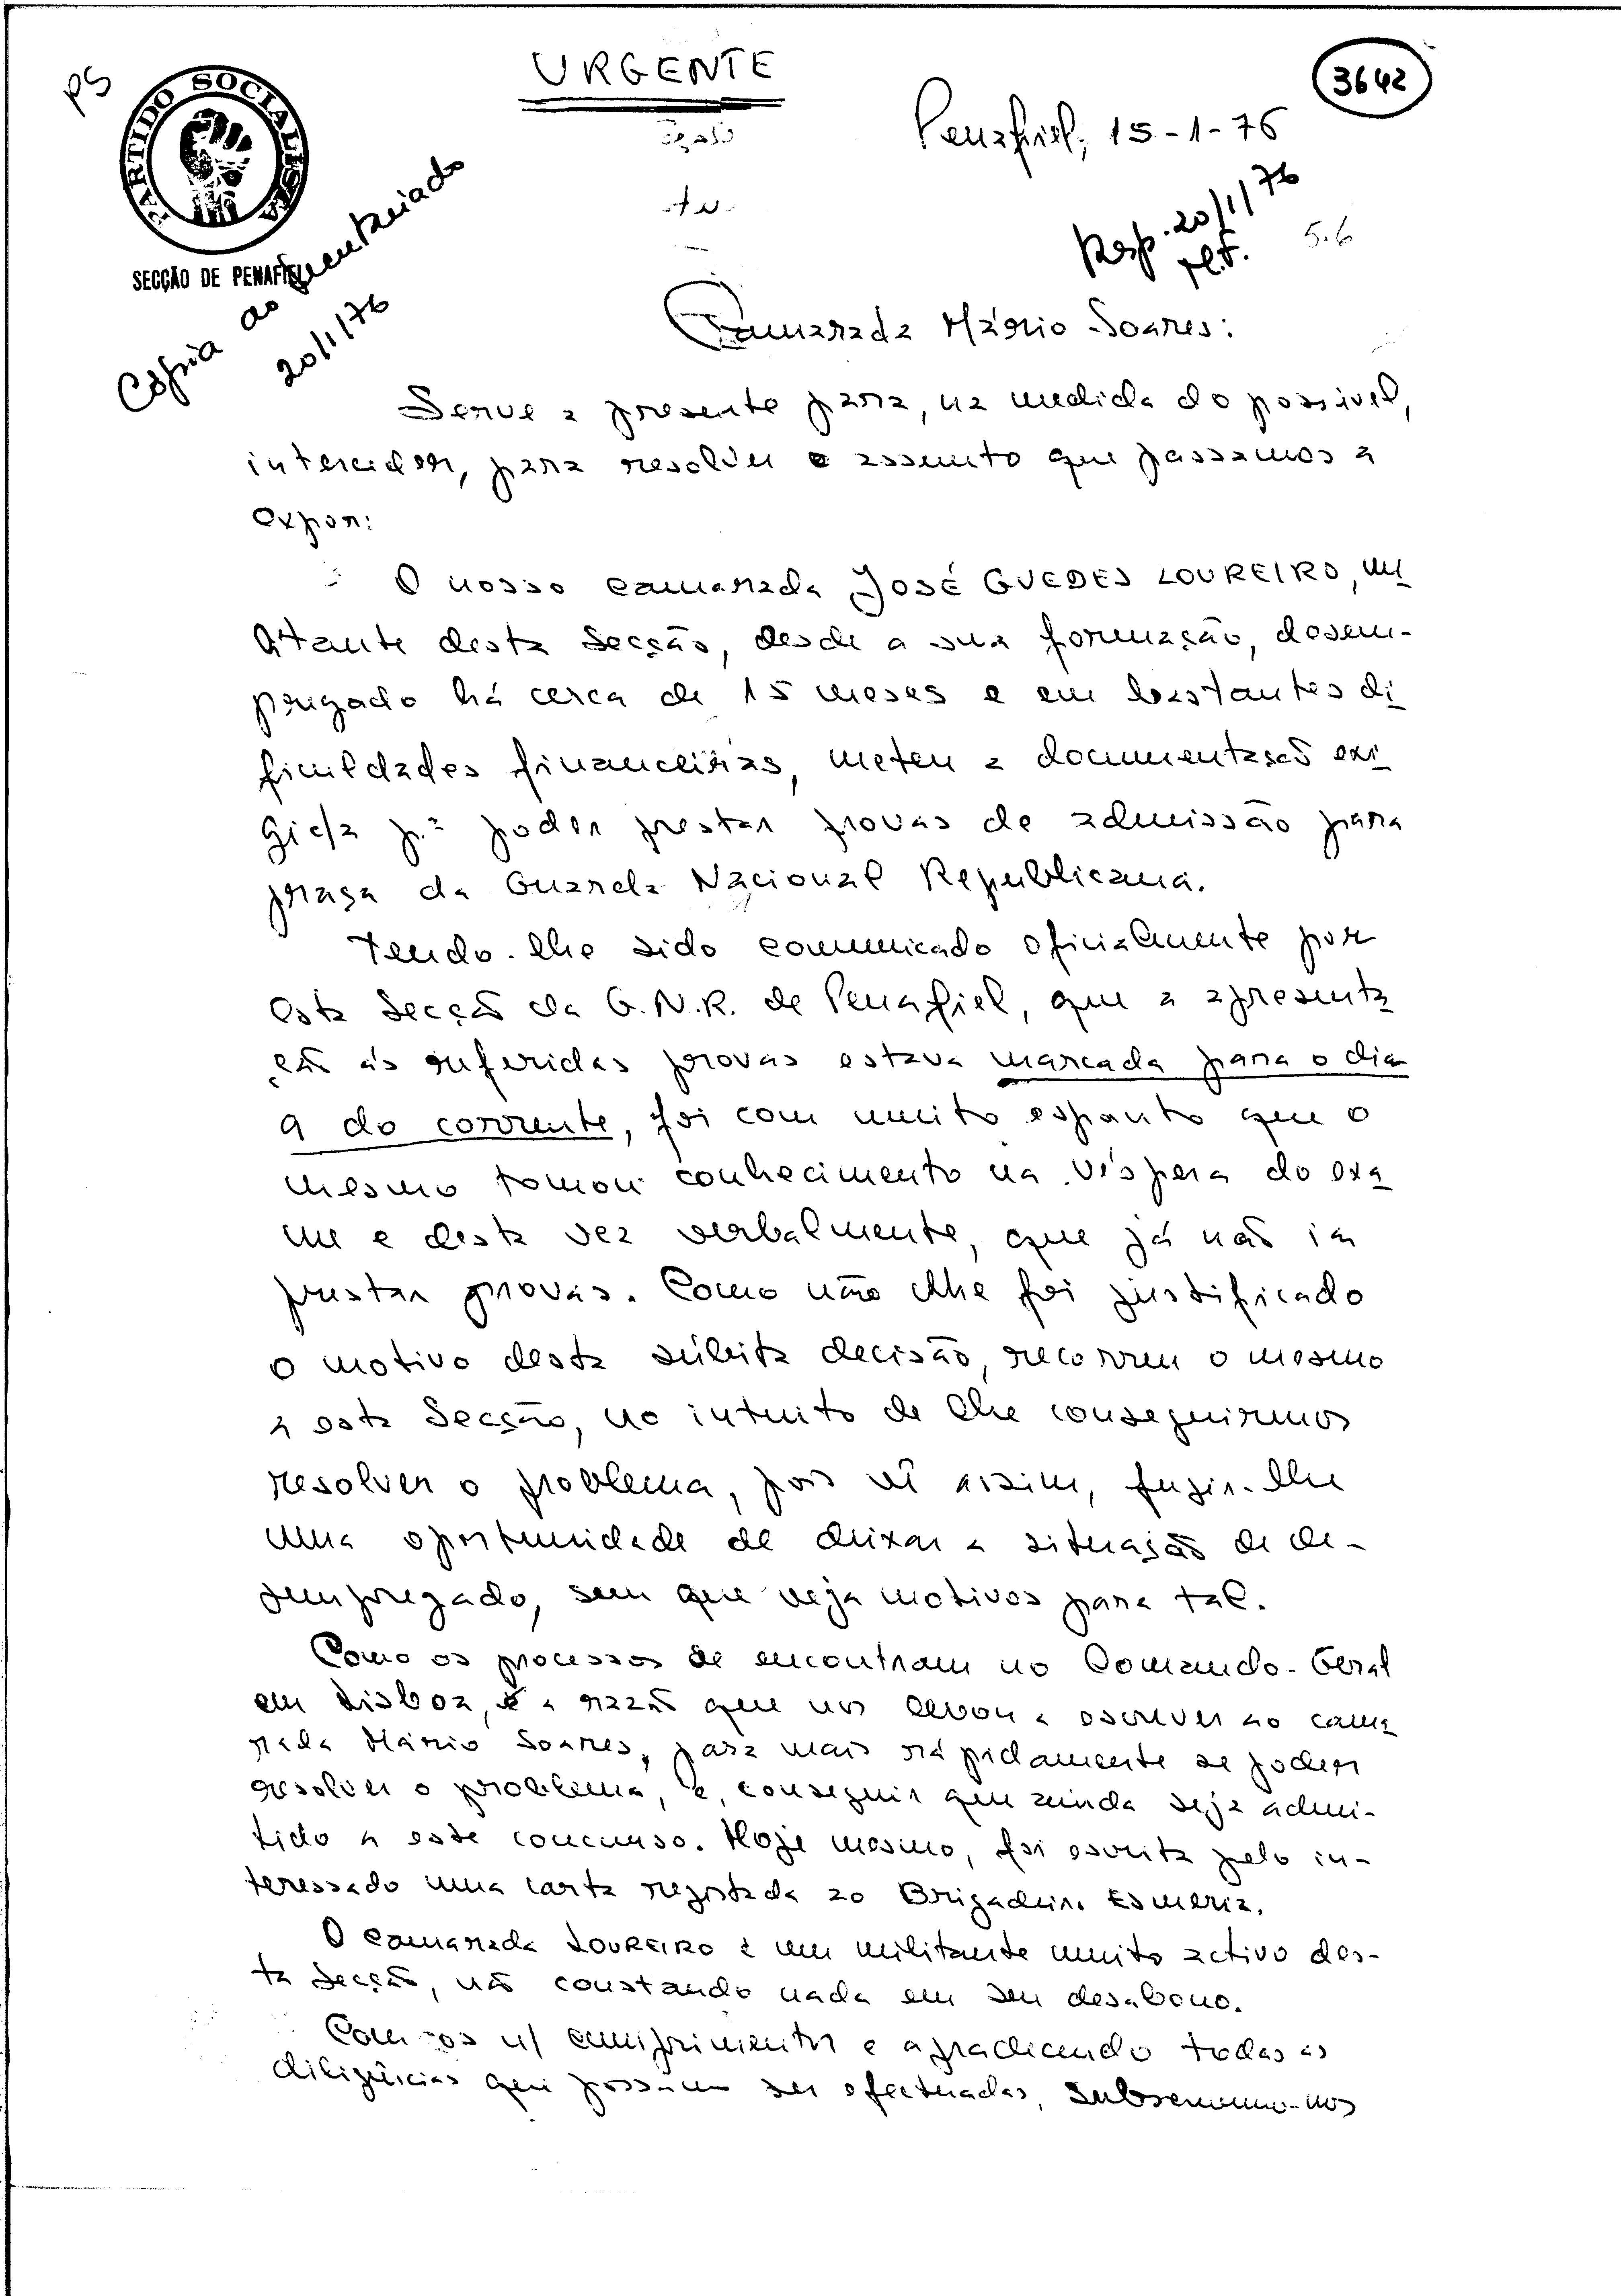 PS
URGENTE
3642
PARTIDO SOCIALISTA
SECÇÃO DE PENAFIEL
Penafiel, 15-1-76
Resp. 20/1/76
5.6
Cópia ao
20/1/76
Camarada Mário Soares:
Serve a presente para, na medida do possível,
interceder, para resolver o assunto que passamos a
expor:
O nosso camarada JOSÉ GUEDES LOUREIRO, mi
litante desta Secção, desde a sua formação, desem-
pregado há cerca de 15 meses e em bastantes di
ficuldades financeiras, meteu a documentação exi
gida p.ª poder prestar provas de admissão para
praça da Guarda Nacional Republicana.
Tendo-lhe sido comunicado oficialmente por
esta Secção da G.N.R. de Penafiel, que a apresenta
ção às referidas provas estava marcada para o dia
9 do corrente, foi com muito espanto que o
mesmo tomou conhecimento na véspera do exa
me e desta vez verbalmente, que já não ia
prestar provas. Como não lhe foi justificado
o motivo desta súbita decisão, recorreu o mesmo
a esta Secção, no intuito de lhe conseguirmos
resolver o problema, pois vê assim, fugir-lhe
uma oportunidade de deixar a situação de de-
sempregado, sem que veja motivos para tal.
Como os processos se encontram no Comando-Geral
em Lisboa, é a razão que nos levou a escrever ao cama
rada Mário Soares, para mais rápidamente se poder
resolver o problema, e, conseguir que ainda seja admi-
tido a esse concurso. Hoje mesmo, foi escrita pelo in-
teressado uma carta registada ao Brigadeiro Esmeriz.
O camarada LOUREIRO é um militante muito activo des-
ta Secção, não constando nada em seu desabono.
Com os n/ cumprimentos e agradecendo todas as
diligências que possam ser efectuadas, subscrevemo-nos